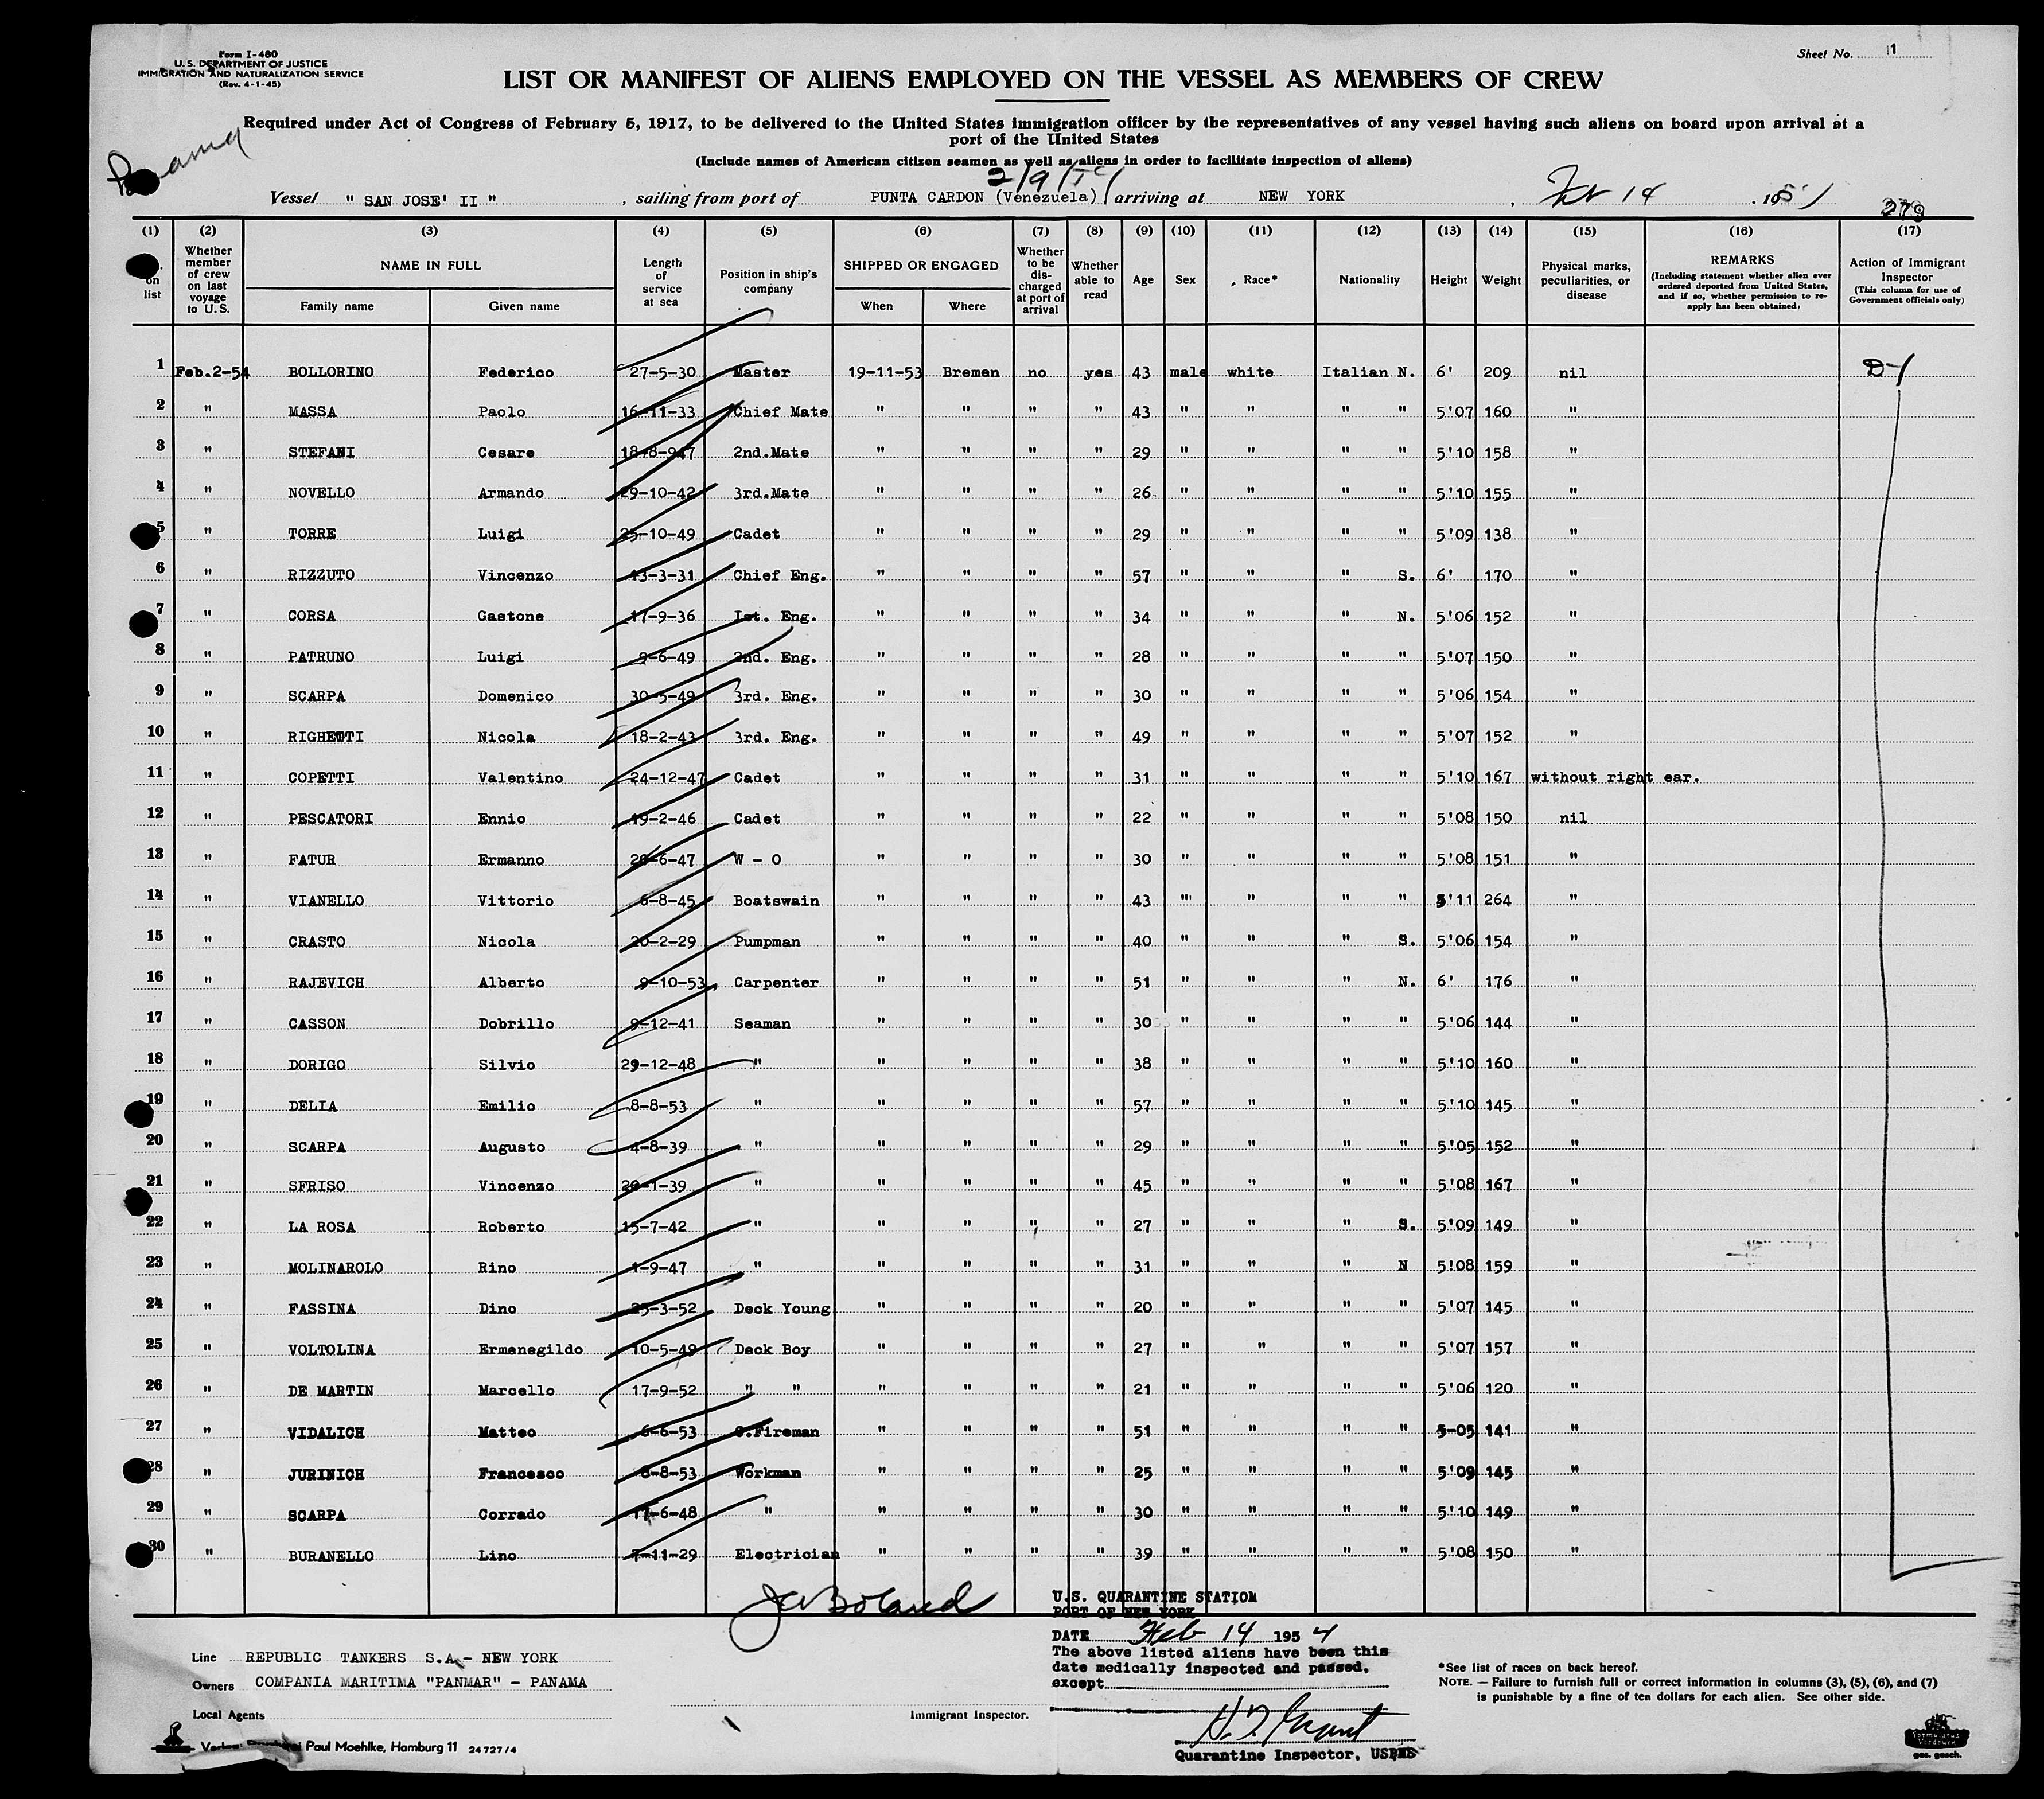 Form I-480
U. S. DEPARTMENT OF JUSTICE
IMMIGRATION AND NATURALIZATION SERVICE
(Rev. 4-1-45)
Sheet No. 1
LIST OR MANIFEST OF ALIENS EMPLOYED ON THE VESSEL AS MEMBERS OF CREW
Required under Act of Congress of February 5, 1917, to be delivered to the United States immigration officer by the representatives of any vessel having such aliens on board upon arrival at a
port of the United States
(Include names of American citizen seamen as well as aliens in order to facilitate inspection of aliens)
Panama
Vessel " SAN JOSE' II " , sailing from port of PUNTA CARDON (Venezuela) arriving at NEW YORK , Feb 14 . 195
279
(1) (2) (3) (4) (5) (6) (7) (8) (9) (10) (11) (12) (13) (14) (15) (16) (17)
on list
Whether member of crew on last voyage to U. S.
NAME IN FULL
Family name Given name
Length of service at sea
Position in ship's company
SHIPPED OR ENGAGED
When Where
Whether to be discharged at port of arrival
Whether able to read
Age Sex Race* Nationality Height Weight
Physical marks, peculiarities, or disease
REMARKS
(Including statement whether alien ever ordered deported from United States, and if so, whether permission to reapply has been obtained)
Action of Immigrant Inspector
(This column for use of Government officials only)
1 Feb.2-54 BOLLORINO Federico 27-5-30 Master 19-11-53 Bremen no yes 43 male white Italian N. 6' 209 nil
2 " MASSA Paolo 16-11-33 Chief Mate " " " " 43 " " " " 5'07 160 "
3 " STEFANI Cesare 18-8-947 2nd.Mate " " " " 29 " " " " 5'10 158 "
4 " NOVELLO Armando 29-10-42 3rd.Mate " " " " 26 " " " " 5'10 155 "
5 " TORRE Luigi 25-10-49 Cadet " " " " 29 " " " " 5'09 138 "
6 " RIZZUTO Vincenzo 13-3-31 Chief Eng. " " " " 57 " " " S. 6' 170 "
7 " CORSA Gastone 17-9-36 Ist. Eng. " " " " 34 " " " N. 5'06 152 "
8 " PATRUNO Luigi 9-6-49 2nd. Eng. " " " " 28 " " " " 5'07 150 "
9 " SCARPA Domenico 30-5-49 3rd. Eng. " " " " 30 " " " " 5'06 154 "
10 " RIGHETTI Nicola 18-2-43 3rd. Eng. " " " " 49 " " " " 5'07 152 "
11 " COPETTI Valentino 24-12-47 Cadet " " " " 31 " " " " 5'10 167 without right ear.
12 " PESCATORI Ennio 19-2-46 Cadet " " " " 22 " " " " 5'08 150 nil
13 " FATUR Ermanno 20-6-47 W - O " " " " 30 " " " " 5'08 151 "
14 " VIANELLO Vittorio 6-8-45 Boatswain " " " " 43 " " " " 5'11 264 "
15 " CRASTO Nicola 20-2-29 Pumpman " " " " 40 " " " S. 5'06 154 "
16 " RAJEVICH Alberto 9-10-53 Carpenter " " " " 51 " " " N. 6' 176 "
17 " CASSON Dobrillo 9-12-41 Seaman " " " " 30 " " " " 5'06 144 "
18 " DORIGO Silvio 29-12-48 " " " " " 38 " " " " 5'10 160 "
19 " DELIA Emilio 8-8-53 " " " " " 57 " " " " 5'10 145 "
20 " SCARPA Augusto 4-8-39 " " " " " 29 " " " " 5'05 152 "
21 " SFRISO Vincenzo 20-1-39 " " " " " 45 " " " " 5'08 167 "
22 " LA ROSA Roberto 15-7-42 " " " " " 27 " " " S. 5'09 149 "
23 " MOLINAROLO Rino 1-9-47 " " " " " 31 " " " N 5'08 159 "
24 " FASSINA Dino 25-3-52 Deck Young " " " " 20 " " " " 5'07 145 "
25 " VOLTOLINA Ermenegildo 10-5-49 Deck Boy " " " " 27 " " " " 5'07 157 "
26 " DE MARTIN Marcello 17-9-52 " " " " " " 21 " " " " 5'06 120 "
27 " VIDALICH Matteo 6-6-53 Fireman " " " " 51 " " " " 5-05 141 "
28 " JURINICH Francesco 8-8-53 Workman " " " " 25 " " " " 5'09 145 "
29 " SCARPA Corrado 17-6-48 " " " " " 30 " " " " 5'10 149 "
30 " BURANELLO Lino 7-11-29 Electrician " " " " 39 " " " " 5'08 150 "
U.S. QUARANTINE STATION
PORT OF NEW YORK
DATE Feb 14 1954
The above listed aliens have been this
date medically inspected and passed,
except
Quarantine Inspector, USPHS
Line REPUBLIC TANKERS S.A. - NEW YORK
Owners COMPANIA MARITIMA "PANMAR" - PANAMA
Local Agents
Immigrant Inspector.
*See list of races on back hereof.
NOTE. — Failure to furnish full or correct information in columns (3), (5), (6), and (7)
is punishable by a fine of ten dollars for each alien. See other side.
Paul Moehlke, Hamburg 11 24727/4
ges. gesch.